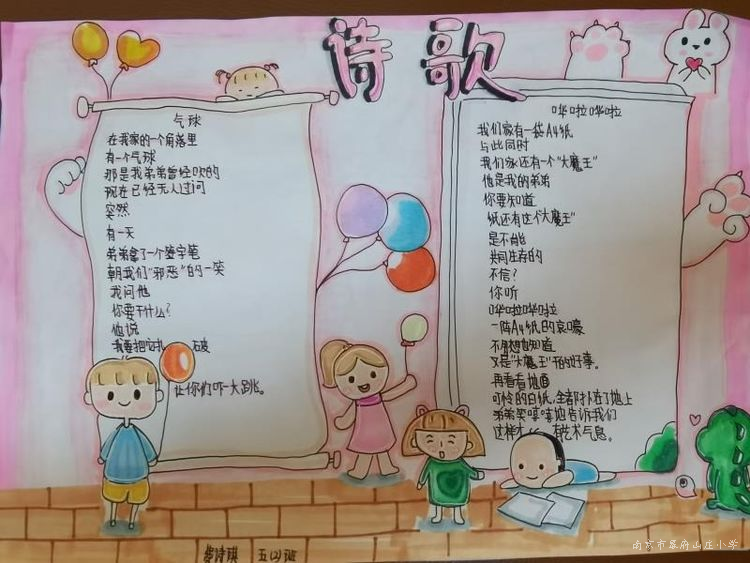 诗歌
气球
在我家的一个角落里
有一个气球
那是我弟弟曾经吹的
现在已经无人过问
突然
有一天
弟弟拿了一个签字笔
朝我们“邪恶”的一笑
我问他
你要干什么?
他说
我要把它扎 破
让你们吓一大跳。
哗啦哗啦
我们家有一袋A4纸
与此同时
我们家还有一个“大魔王”
他是我的弟弟
你要知道
纸还有这个“大魔王”
是不能
共同生存的
不信?
你听
哗啦哗啦
一阵A4纸的哀嚎
不用想也知道
又是“大魔王”干的好事。
再看看地面
可怜的白纸,全都扑在了地上
弟弟笑嘻嘻地告诉我们
这样才 有艺术气息。
诗琪 五(2)班
南京市幕府山庄小学